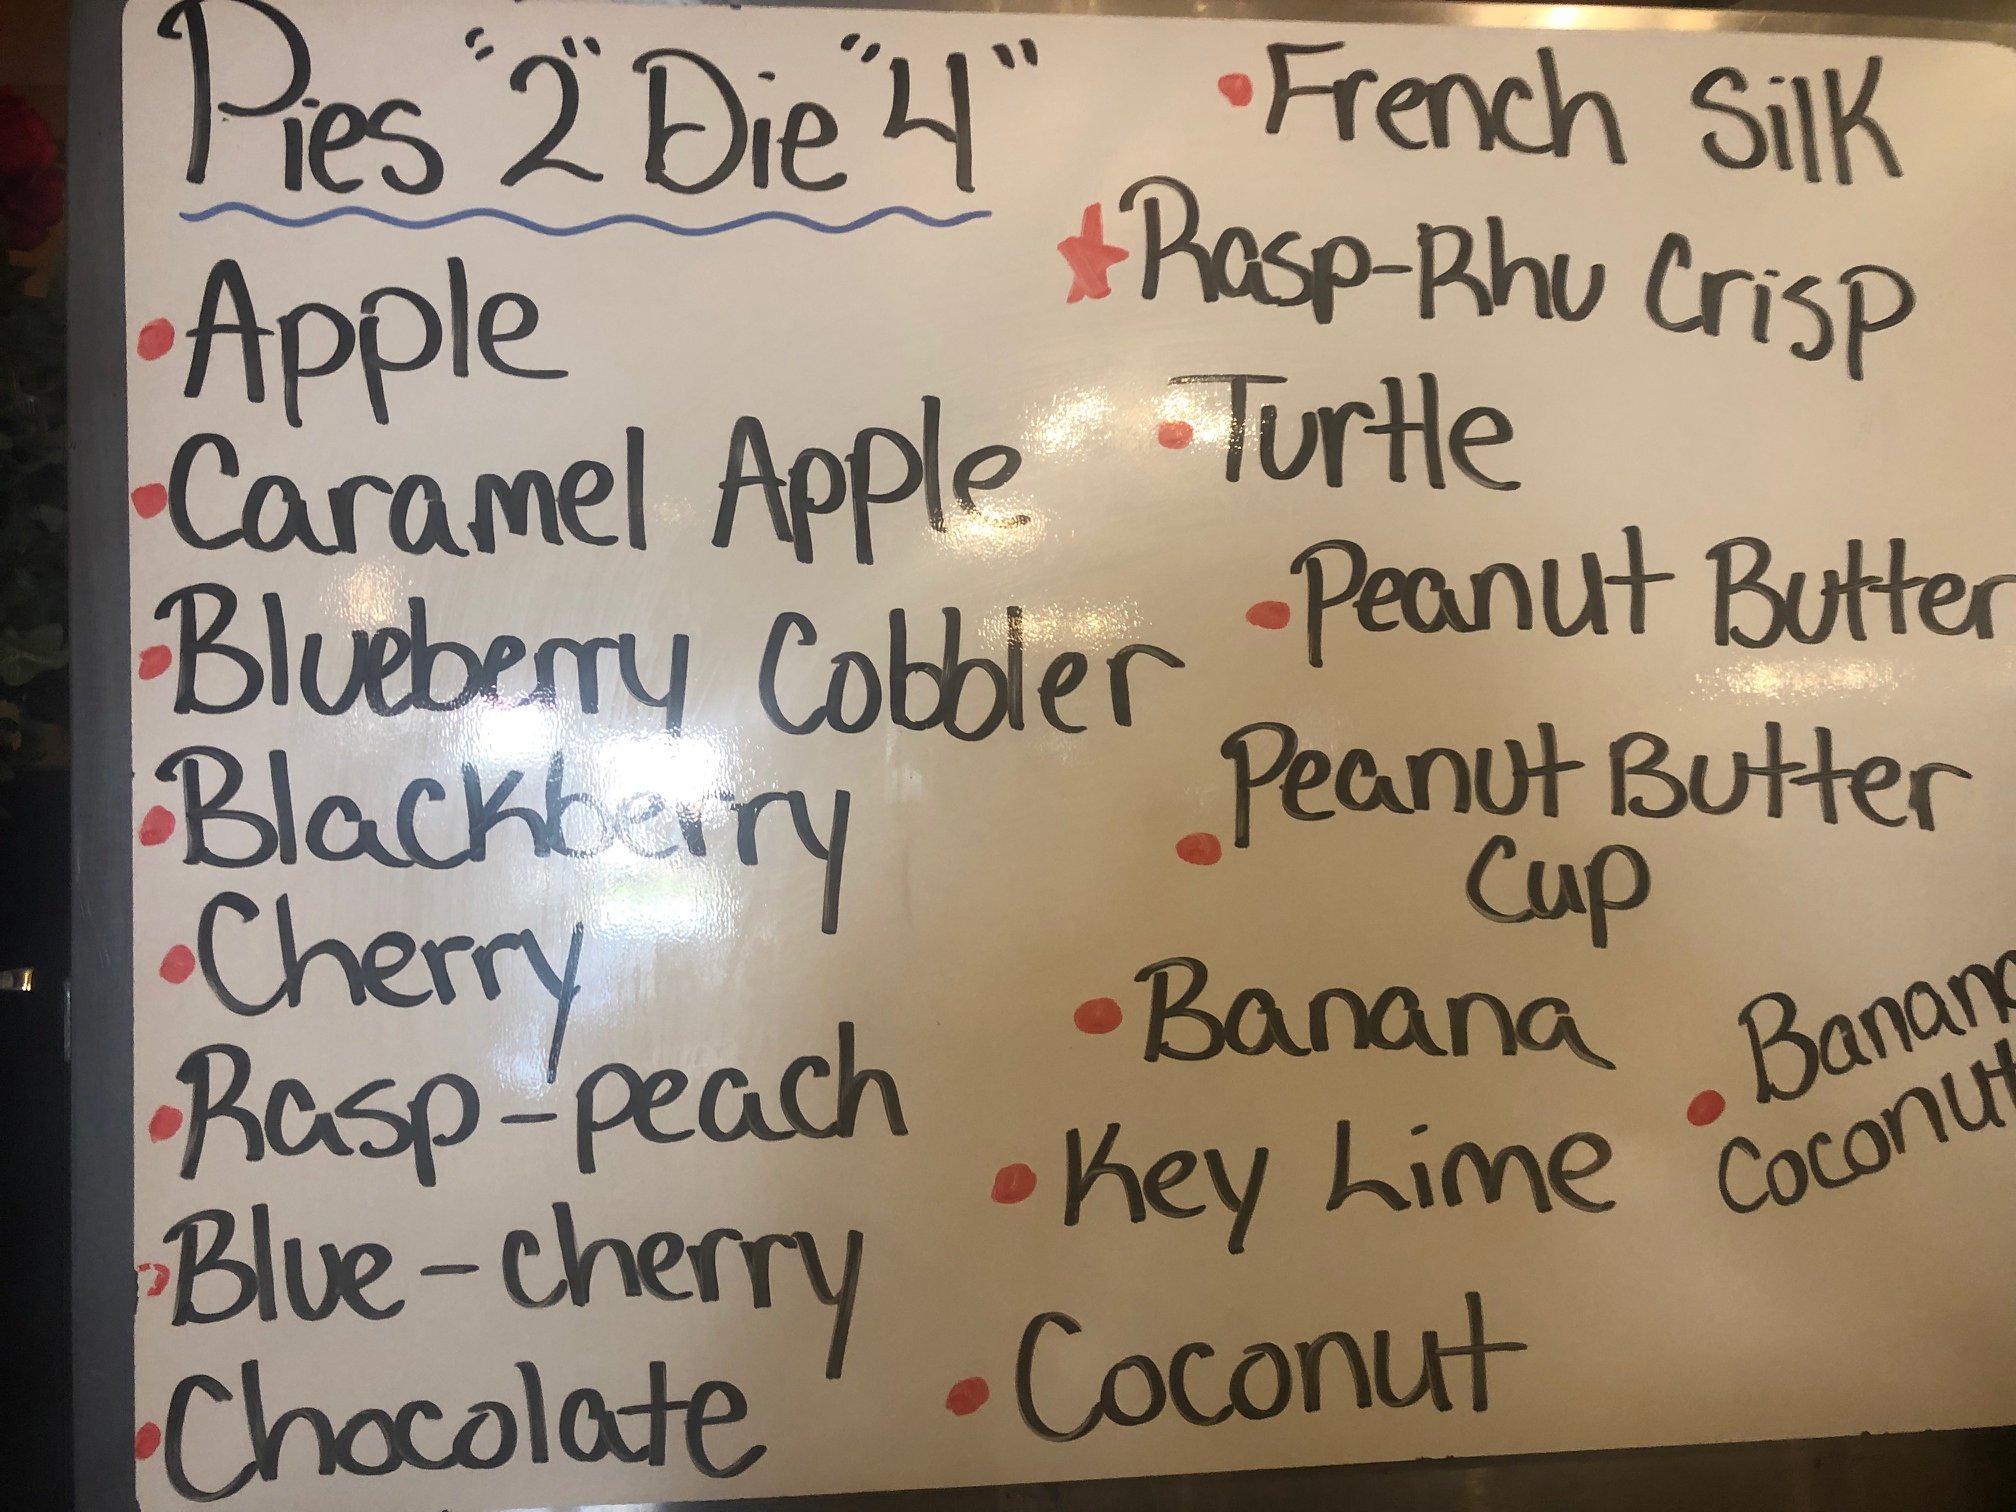 Pies "2" Die "4"
• Apple
• Caramel Apple
• Blueberry Cobbler
• Blackberry
• Cherry
• Rasp-peach
• Blue-cherry
• Chocolate
• French Silk
★ Rasp-Rhu Crisp
• Turtle
• Peanut Butter
• Peanut Butter
Cup
• Banana
• Key Lime
• Coconut
• Banana
Coconut